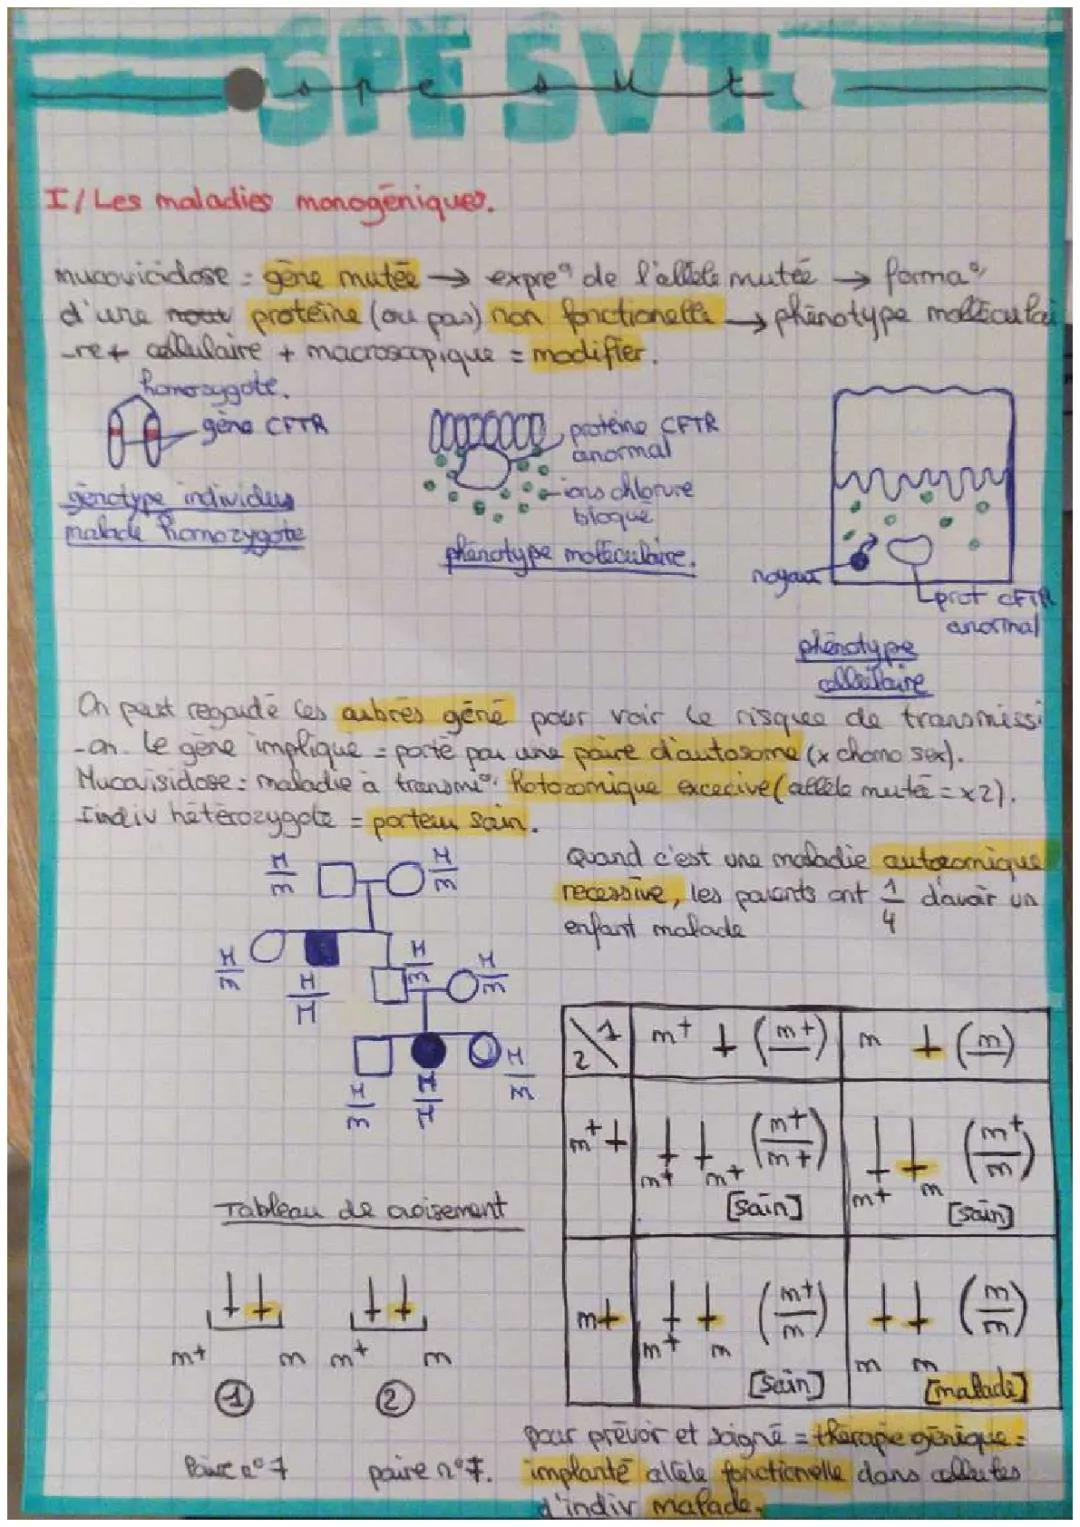 SPE SVT
spe svt
I/ Les maladies monogéniques.
mucovicidose = gène mutée → expre° de l'allèle mutée → forma°
d'une protéine (ou pas) non fonctionelle → phénotype moléculai
-re + cellulaire + macroscopique = modifier.
homozygote.
gène CFTR
génotype individus
malade homozygote
protéine CFTR
anormal
ions chlorure
bloqué
phénotype moléculaire.
noyau
prot CFTR
anormal
phénotype
cellulaire
On peut regardé les aubres géné pour voir le risques de transmissi
-on. Le gène impliqué = porté par une paire d'autosome (x chomo sex).
Mucovisidose = maladie à transmi° Hotozomique excecive (allèle muté = x2).
Indiv hétérozygote = porteur sain.
Quand c'est une maladie autozomique
recessive, les parents ont 1/4 d'avoir un
enfant malade
M/m
M/m
M/m
M/M
M/m
M/m
M/m
M/M
M/m
2 \ 1 m+ (m+) m (m)
m+ m+ m+ (m+/m+) [sain] m+ m (m+/m) [sain]
m m+ m (m+/m) [sain] m m (m/m) [malade]
Tableau de croisement
m+ m m+ m
1 2
Paire n°7 paire n°7.
pour prévoir et soigné = thérapie génique =
implanté allèle fonctionelle dans cellules
d'indiv malade.